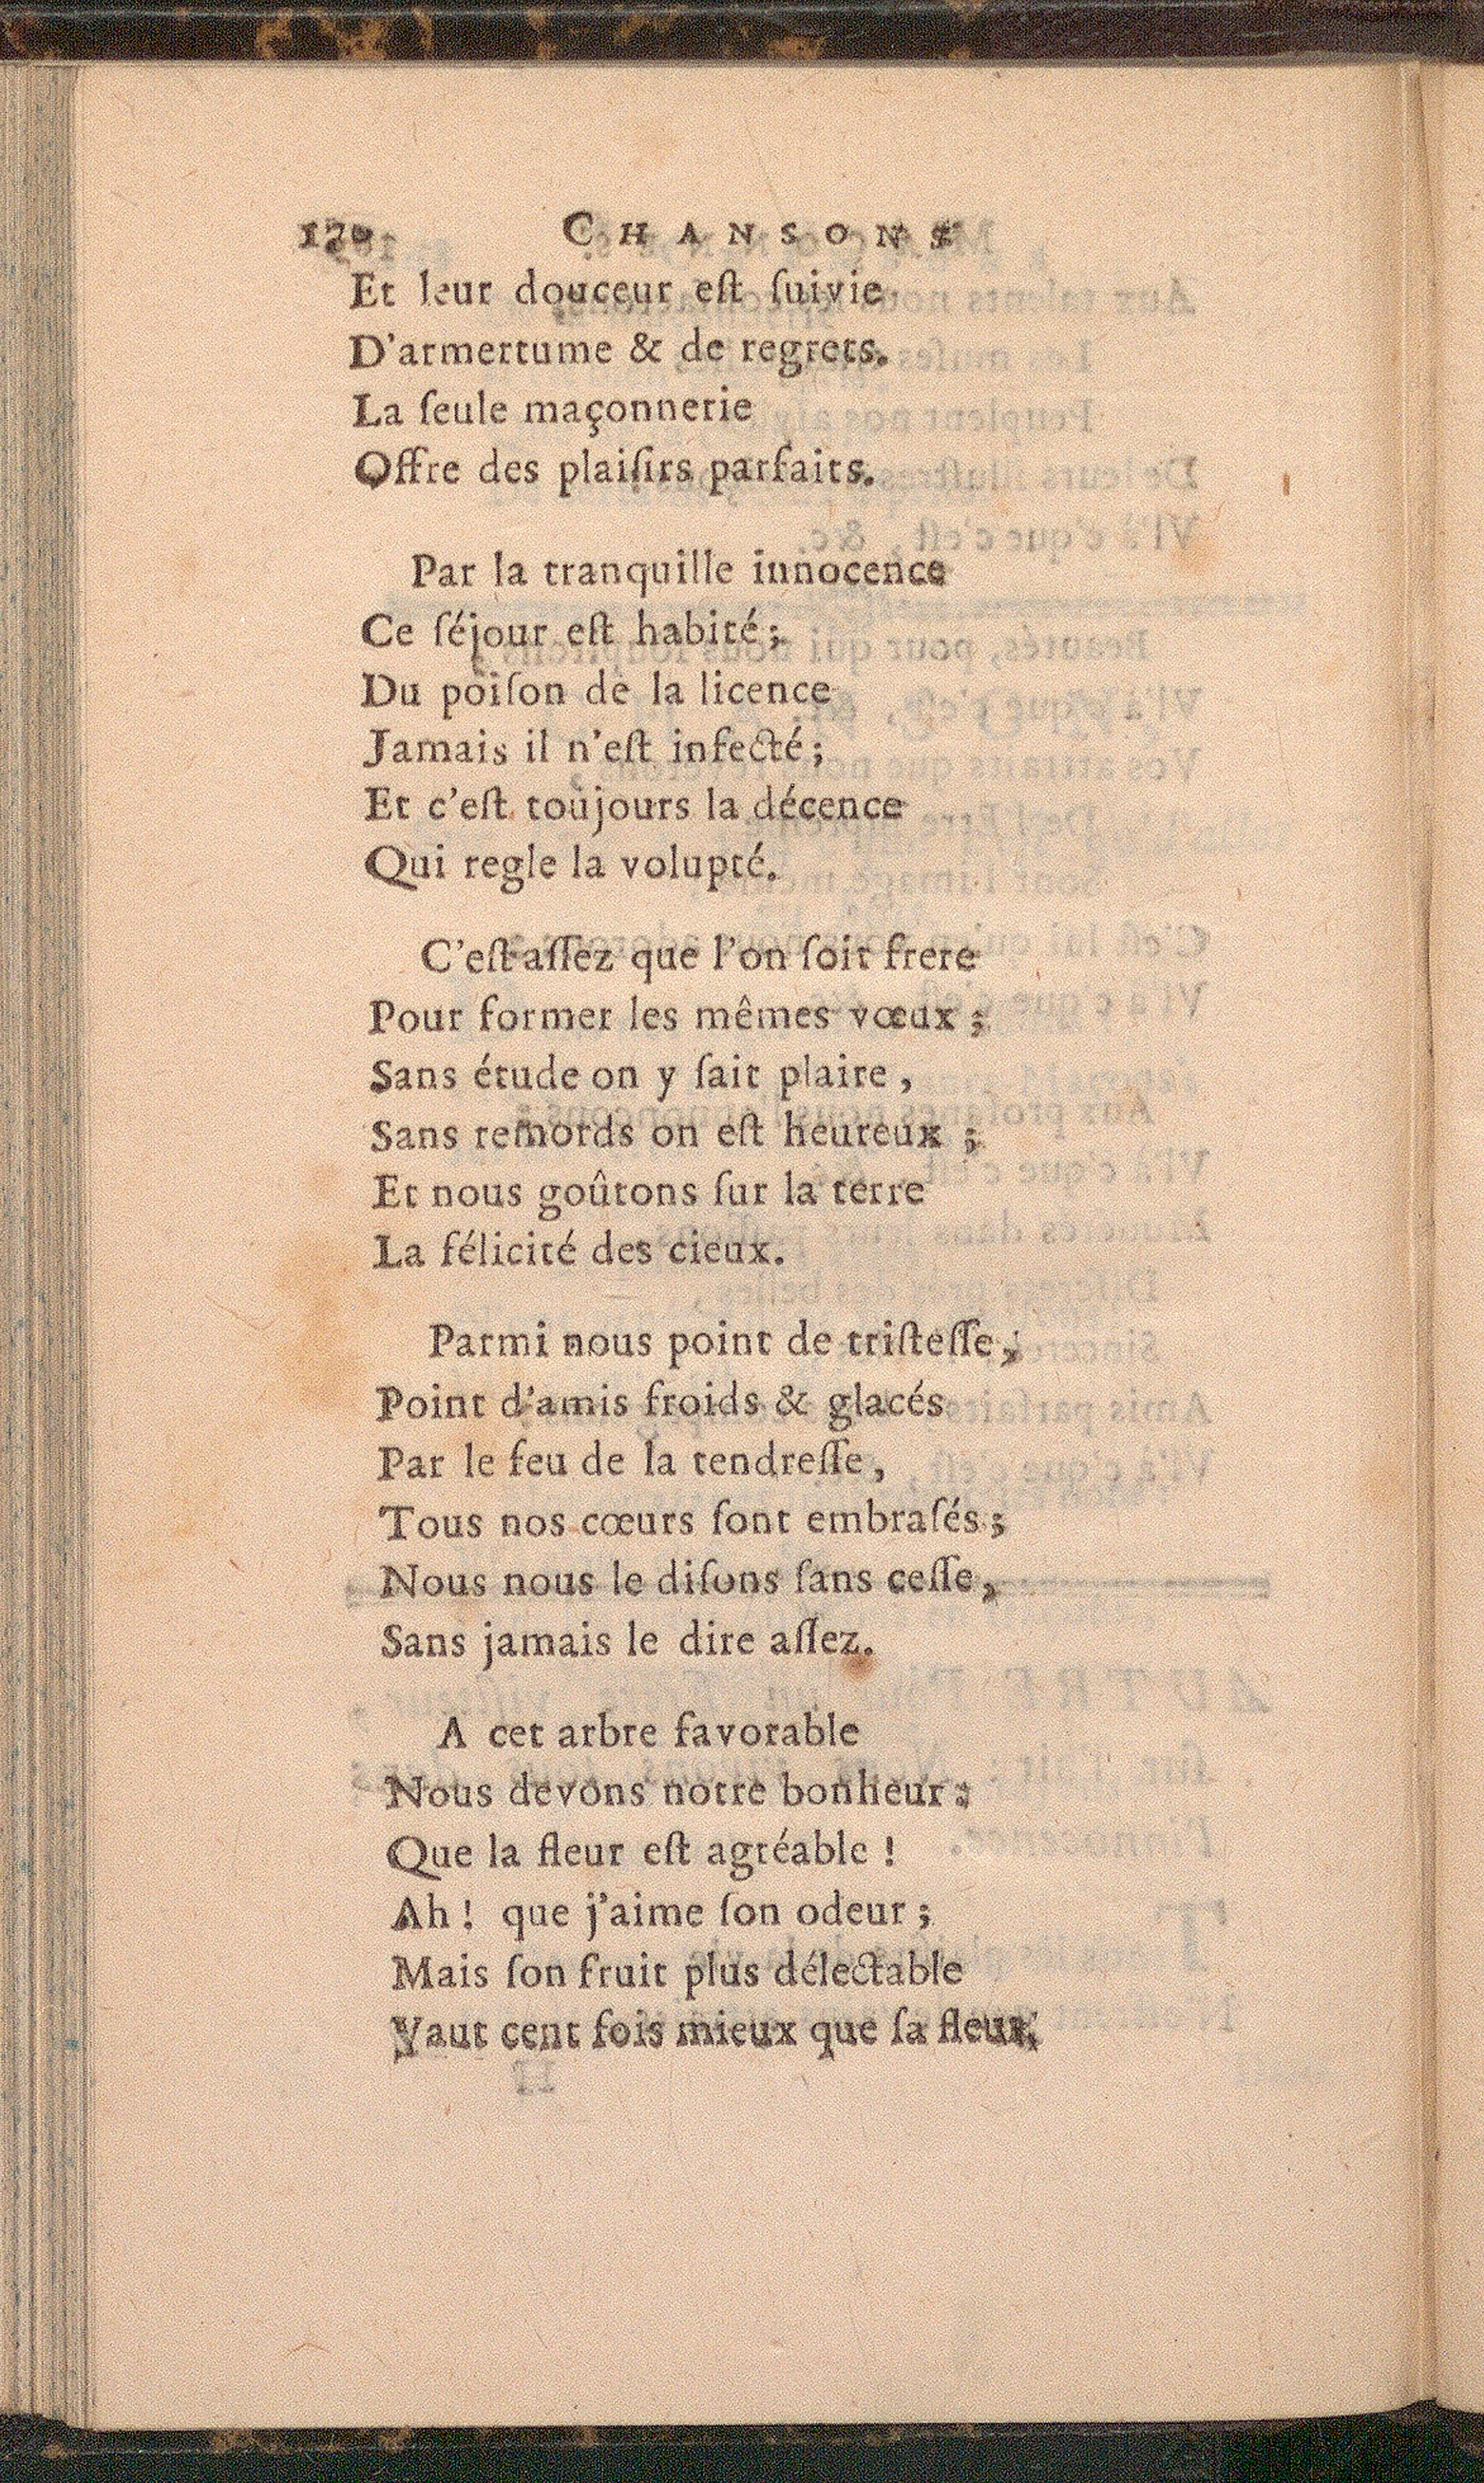 170 CHANSONS
Et leur douceur eſt ſuivie
D'armertume & de regrets.
La ſeule maçonnerie
Offre des plaiſirs parfaits.
Par la tranquille innocence
Ce ſéjour eſt habité;
Du poiſon de la licence
Jamais il n'eſt infecté;
Et c'eſt toujours la décence
Qui regle la volupté.
C'eſt aſſez que l'on ſoit frere
Pour former les mêmes vœux;
Sans étude on y ſait plaire,
Sans remords on eſt heureux;
Et nous goûtons ſur la terre
La félicité des cieux.
Parmi nous point de triſteſſe;
Point d'amis froids & glacés
Par le feu de la tendreſſe,
Tous nos cœurs ſont embraſés;
Nous nous le diſons ſans ceſſe,
Sans jamais le dire aſſez.
A cet arbre favorable
Nous devons notre bonheur;
Que la fleur eſt agréable!
Ah! que j'aime ſon odeur;
Mais ſon fruit plus délectable
Vaut cent fois mieux que ſa fleur.